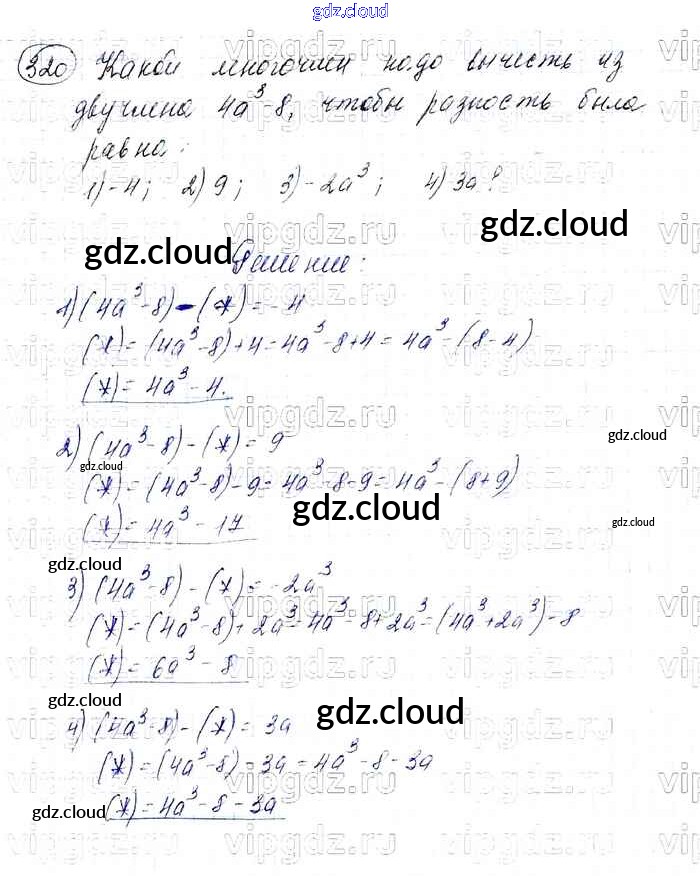 gdz.cloud
320 Какой многочлен надо вычесть из
двучлена 4a³-8, чтобы разность была
равна:
1) -4; 2) 9; 3) -2a³; 4) 3a?
gdz.cloud
gdz.cloud Решение:
1) (4a³-8) - (*) = -4
(*) = (4a³-8)+4 = 4a³-8+4 = 4a³-(8-4)
(*) = 4a³ - 4.
2) (4a³-8) - (*) = 9
gdz.cloud
gdz.cloud
(*) = (4a³-8)-9 = 4a³-8-9 = 4a³-(8+9)
gdz.cloud
(*) = 4a³ - 17
gdz.cloud
gdz.cloud
3) (4a³-8) - (*) = -2a³
(*) = (4a³-8)+2a³ = 4a³-8+2a³ = (4a³+2a³)-8
(*) = 6a³ - 8
gdz.cloud
gdz.cloud
4) (4a³-8) - (*) = 3a
(*) = (4a³-8) = 3a = 4a³ - 8 - 3a
gdz.cloud
(*) = 4a³ - 8 - 3a
vipgdz.ru